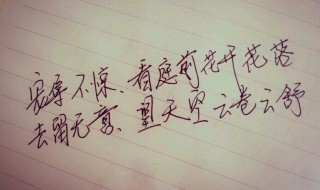 宠辱不惊、看庭前花开花落
去留无意、望天空云卷云舒